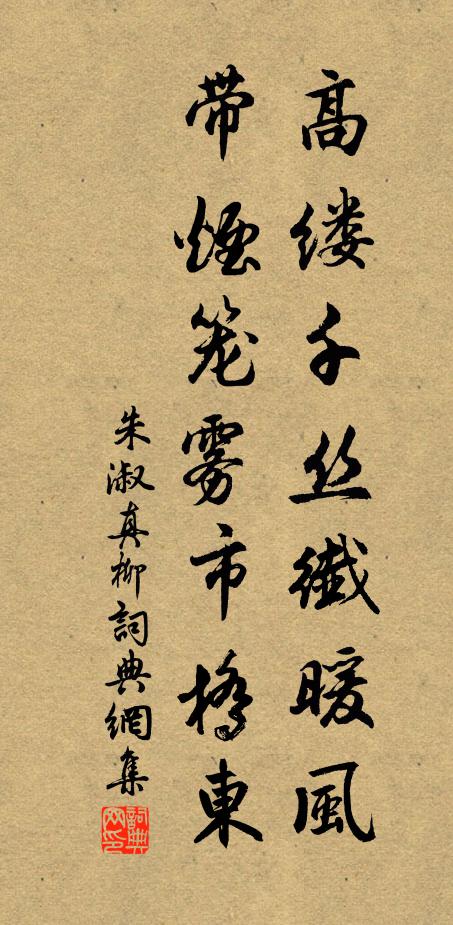 高缕千丝纎暖風
带煙笼雾市橋東
朱淑真柳詞典網集
詞典网印